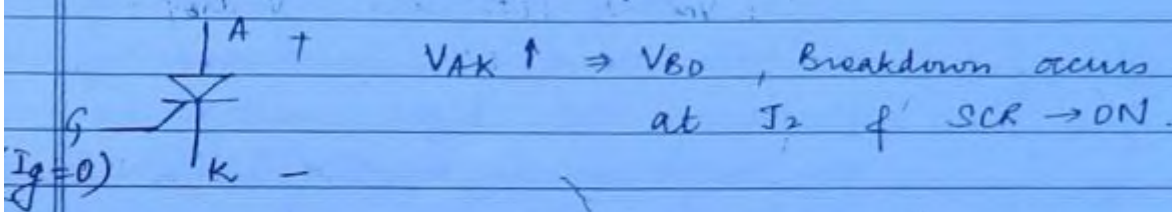 A +
VAK ↑ ⇒ VBO , Breakdown occurs
G
at J2 & SCR → ON.
(Ig=0)
K -